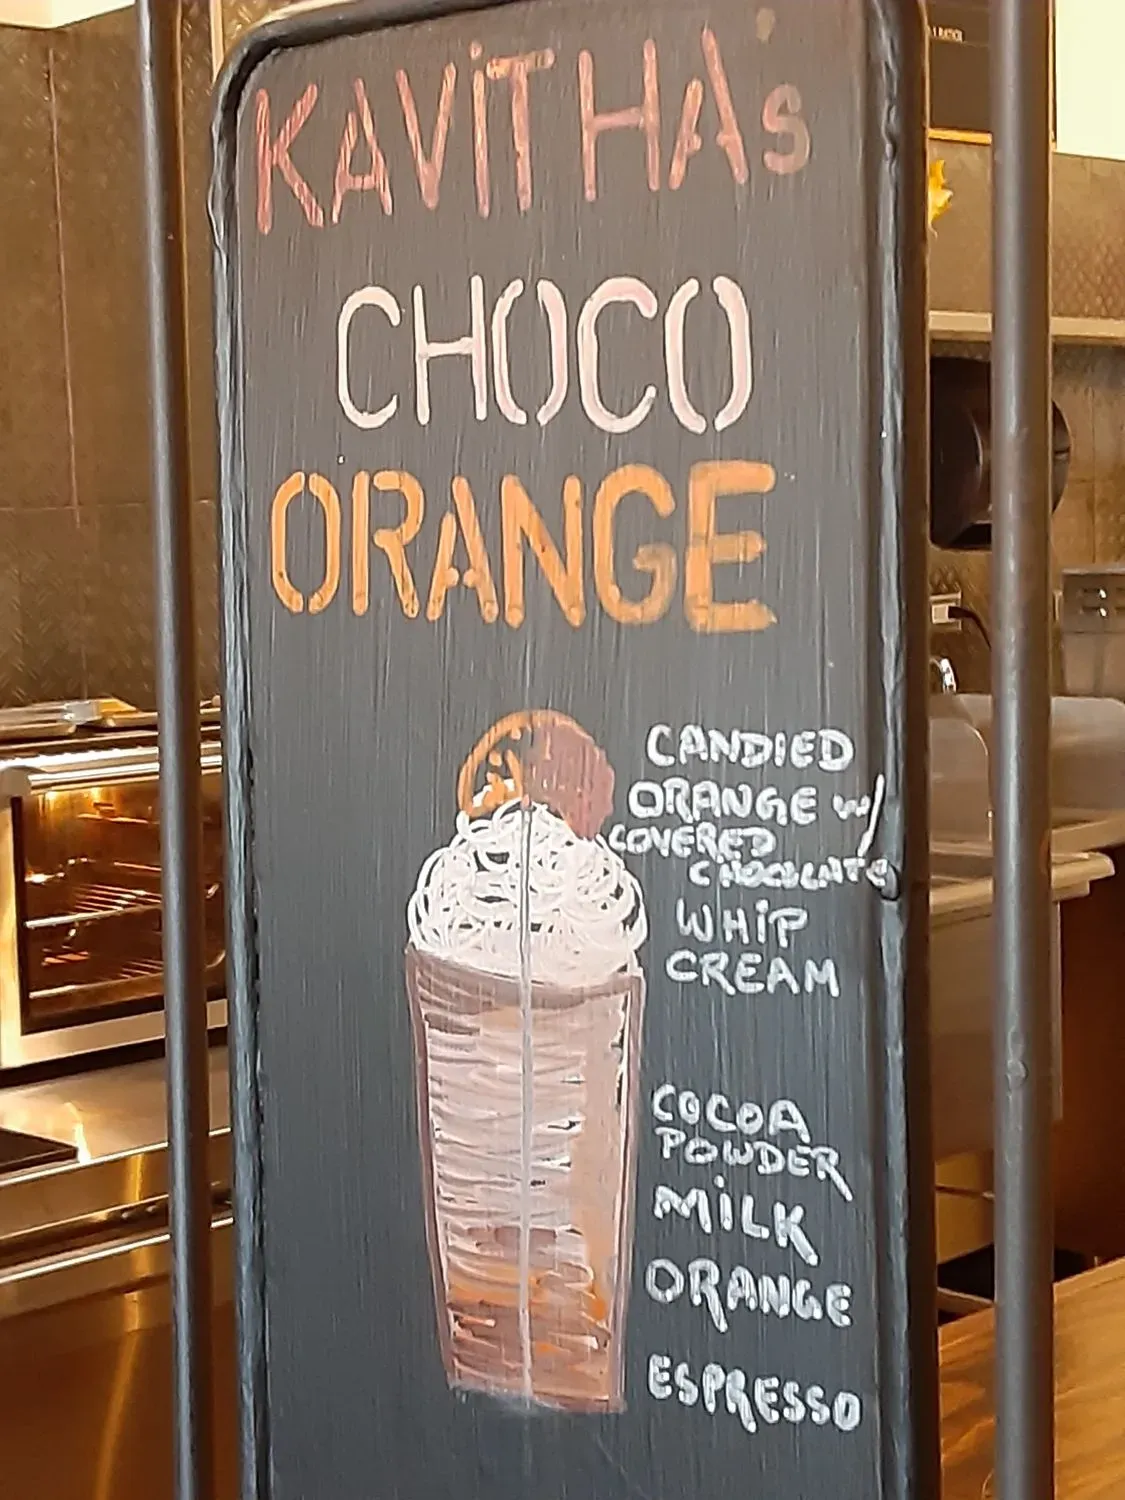 KAVITHA's
CHOCO
ORANGE
CANDIED
ORANGE w/
COVERED
CHOCOLATE
WHIP
CREAM
COCOA
POWDER
MILK
ORANGE
ESPRESSO